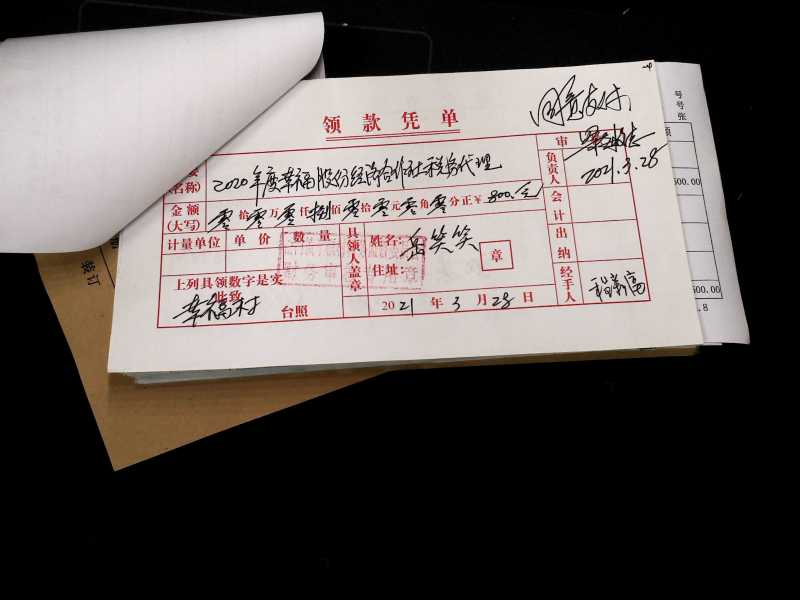 领款凭单
同意支付
2021.3.28
(名称) 2020年度幸福股份经济合作社税务代理
审
负责人
金额(大写) 零拾零万零仟捌佰零拾零元零角零分正¥800.元
会计
计量单位 单价 数量
具领人盖章
姓名: 岳笑笑
住址:
章
出纳
上列具领数字是实
此致
幸福村 台照
2021年3月28日
经手人
号
号
张
额
500.00
500.00
.8
装订